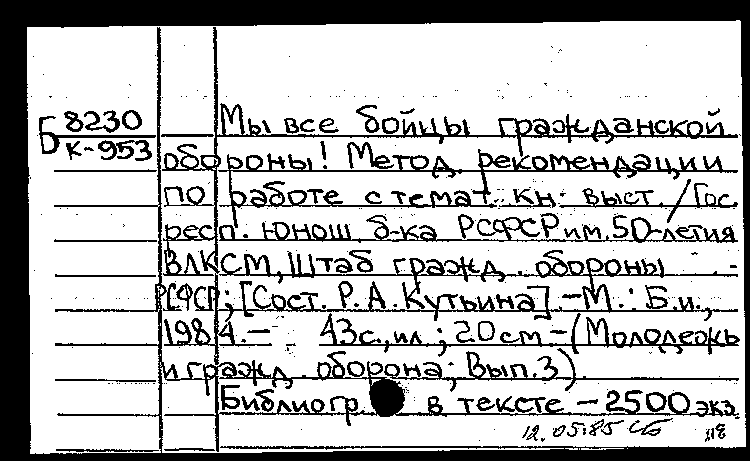 Б 8230 Мы все бойцы гражданской
К-953 обороны! Метод. рекомендации
по работе с темат. кн. выст. / Гос.
респ. юнош. б-ка РСФСР им. 50-летия
ВЛКСМ, Штаб гражд. обороны
РСФСР; [Сост. Р. А. Кутьина]. - М.: Б.и.,
1984. - 43 с., ил.; 20 см - (Молодежь
и гражд. оборона; Вып. 3)
Библиогр. в тексте - 2500 экз.
12.05.85